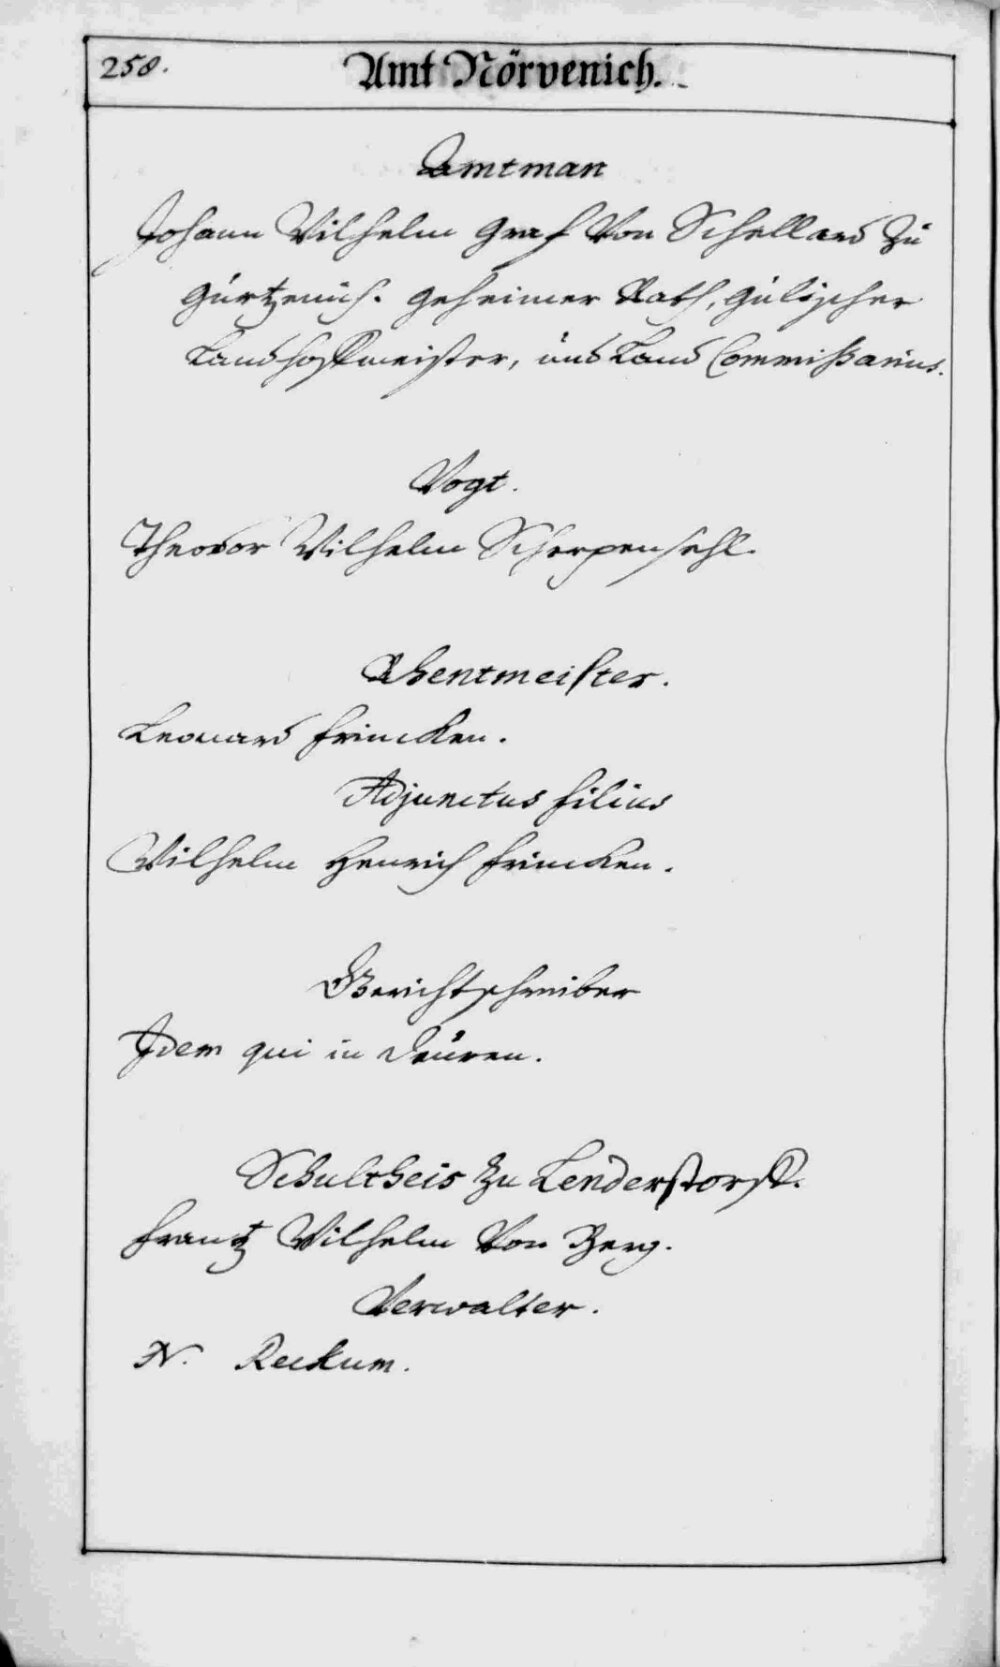 258.
Amt Nörvenich.
Amtman
Johann Wilhelm Graf Von Schellard zu
Gürtzenich. Geheimer Rath, Gülischer
Landhoffmeister, und Land Commißarius.
Vogt.
Theodor Wilhelm Scherpensehl.
Rhentmeister.
Leonard Frincken.
Adjunctus filius
Wilhelm Henrich Frincken.
Gerichtschreiber
Idem qui in Deuren.
Schultheis zu Lenderstorff.
Frantz Wilhelm Von Berg.
Verwalter.
N. Reckum.